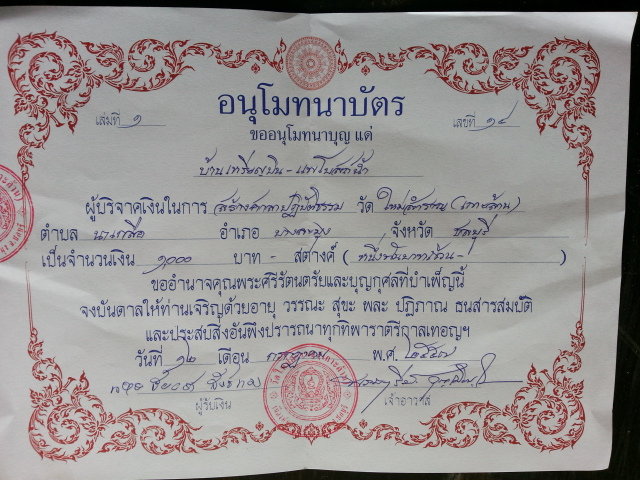 อนุโมทนาบัตร
เล่มที่ ๑ เลขที่ ๑๔
ขออนุโมทนาบุญ แด่
บ้านเหรียญเงิน -
ผู้บริจาคเงินในการ สร้างศาลาปฏิบัติธรรม วัด ใหม่สำราญ (เกาะล้าน)
ตำบล นาเกลือ อำเภอ บางละมุง จังหวัด ชลบุรี
เป็นจำนวนเงิน ๑๐๐๐ บาท - สตางค์ ( หนึ่งพันบาทถ้วน- )
ขออำนาจคุณพระศรีรัตนตรัยและบุญกุศลที่บำเพ็ญนี้
จงบันดาลให้ท่านเจริญด้วยอายุ วรรณะ สุขะ พละ ปฏิภาณ ธนสารสมบัติ
และประสบสิ่งอันพึงปรารถนาทุกทิพาราตรีกาลเทอญฯ
วันที่ ๑๒ เดือน กรกฎาคม พ.ศ. ๒๕๕๗
ผู้รับเงิน เจ้าอาวาส